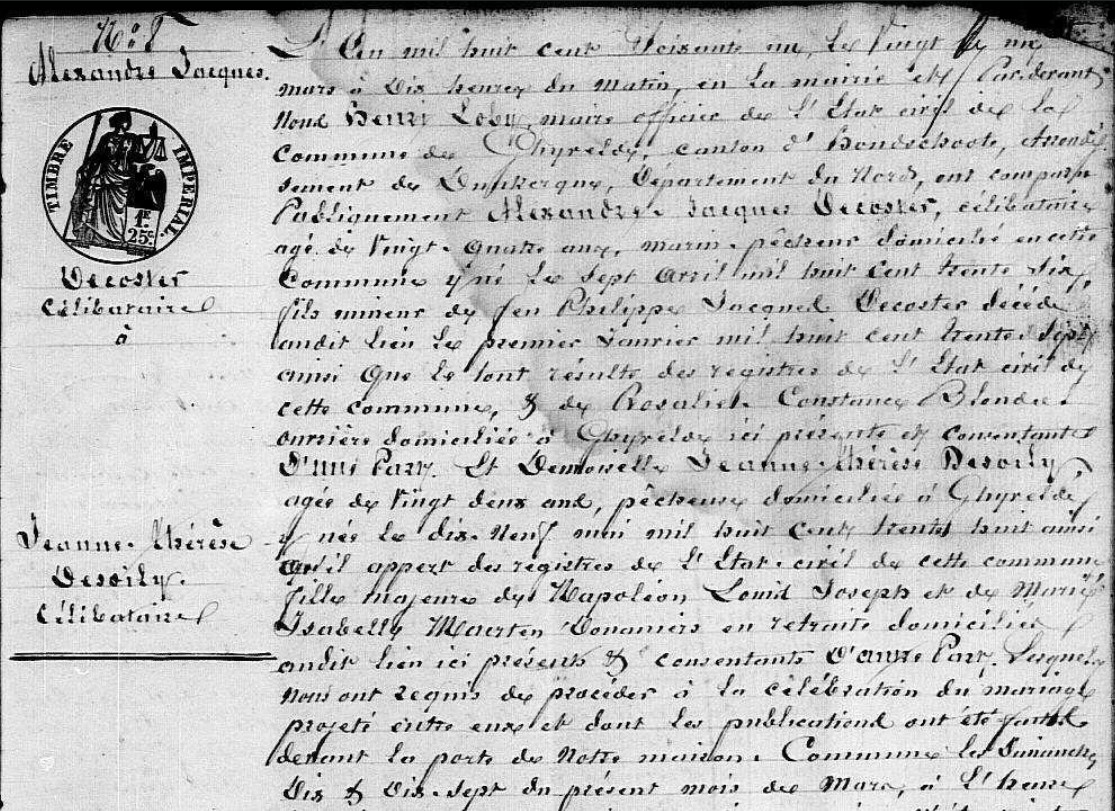 N.o 8
Alexandre Jacques.
TIMBRE IMPERIAL.
1F.
25c.
Decoster
Célibataire
à
Jeanne-thérèse
Desoily.
Célibataire
L'An mil huit cent Soixante un, Le Vingt
mars à Dix heures du matin, en La mairie et Pardevant
Nous Henri Loby, maire officier de L'Etat civil de la
Commune de Ghyvelde, canton d'Hondschoote, Arrondis
sement de Dunkerque, Département du Nord, ont comparu
Publiquement Alexandre-Jacques Decoster, célibataire
agé de Vingt-quatre ans, marin-pêcheur domicilié en cette
Commune y né le Sept Avril mil huit cent trente Six
fils mineur de feu Philippe Jacques Decoster décédé
audit lieu le premier Janvier mil huit cent trente-Sept
ainsi que le tout résulte des registres de L'Etat civil de
cette commune, & de Rosalie-Constance Blonde.
ouvrière domiciliée à Ghyvelde ici présente et consentante
D'une Part. Et Demoiselle Jeanne-thérèse Desoily,
agée de Vingt deux ans, pêcheuse domiciliée à Ghyvelde
y née le dix-Neuf mai mil huit cent trente huit ainsi
qu'il appert des registres de L'Etat-civil de cette commune
fille majeure de Napoléon Louis Joseph et de Marie
Isabelle Maerten Douaniers en retraite domiciliés
audit lieu ici présents & consentants D'autre Part. Lesquels
Nous ont requis de procéder à La célébration du mariage
projeté entre eux et dont Les publications ont été faites
devant la porte de Notre maison-Commune les Dimanches
Dix & Dix-Sept du présent mois de Mars, à L'heure